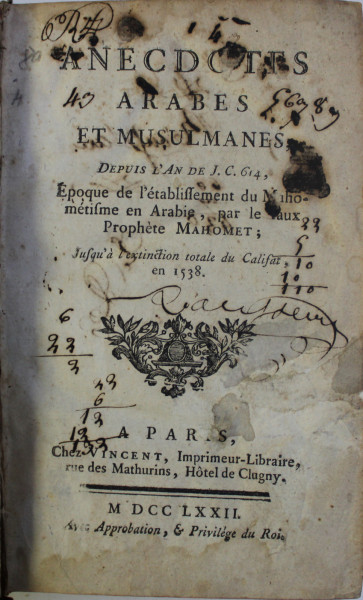 ANECDOTES
ARABES
ET MUSULMANES,
DEPUIS L'AN DE J. C. 614,
Époque de l'établissement du Maho-
métisme en Arabie, par le faux
Prophète MAHOMET;
Jusqu'à l'extinction totale du Califat
en 1538.
5
10
10
110
6
22
2
22
6
12
A PARIS,
Chez VINCENT, Imprimeur-Libraire,
rue des Mathurins, Hôtel de Clugny.
M DCC LXXII.
Avec Approbation, & Privilége du Roi.